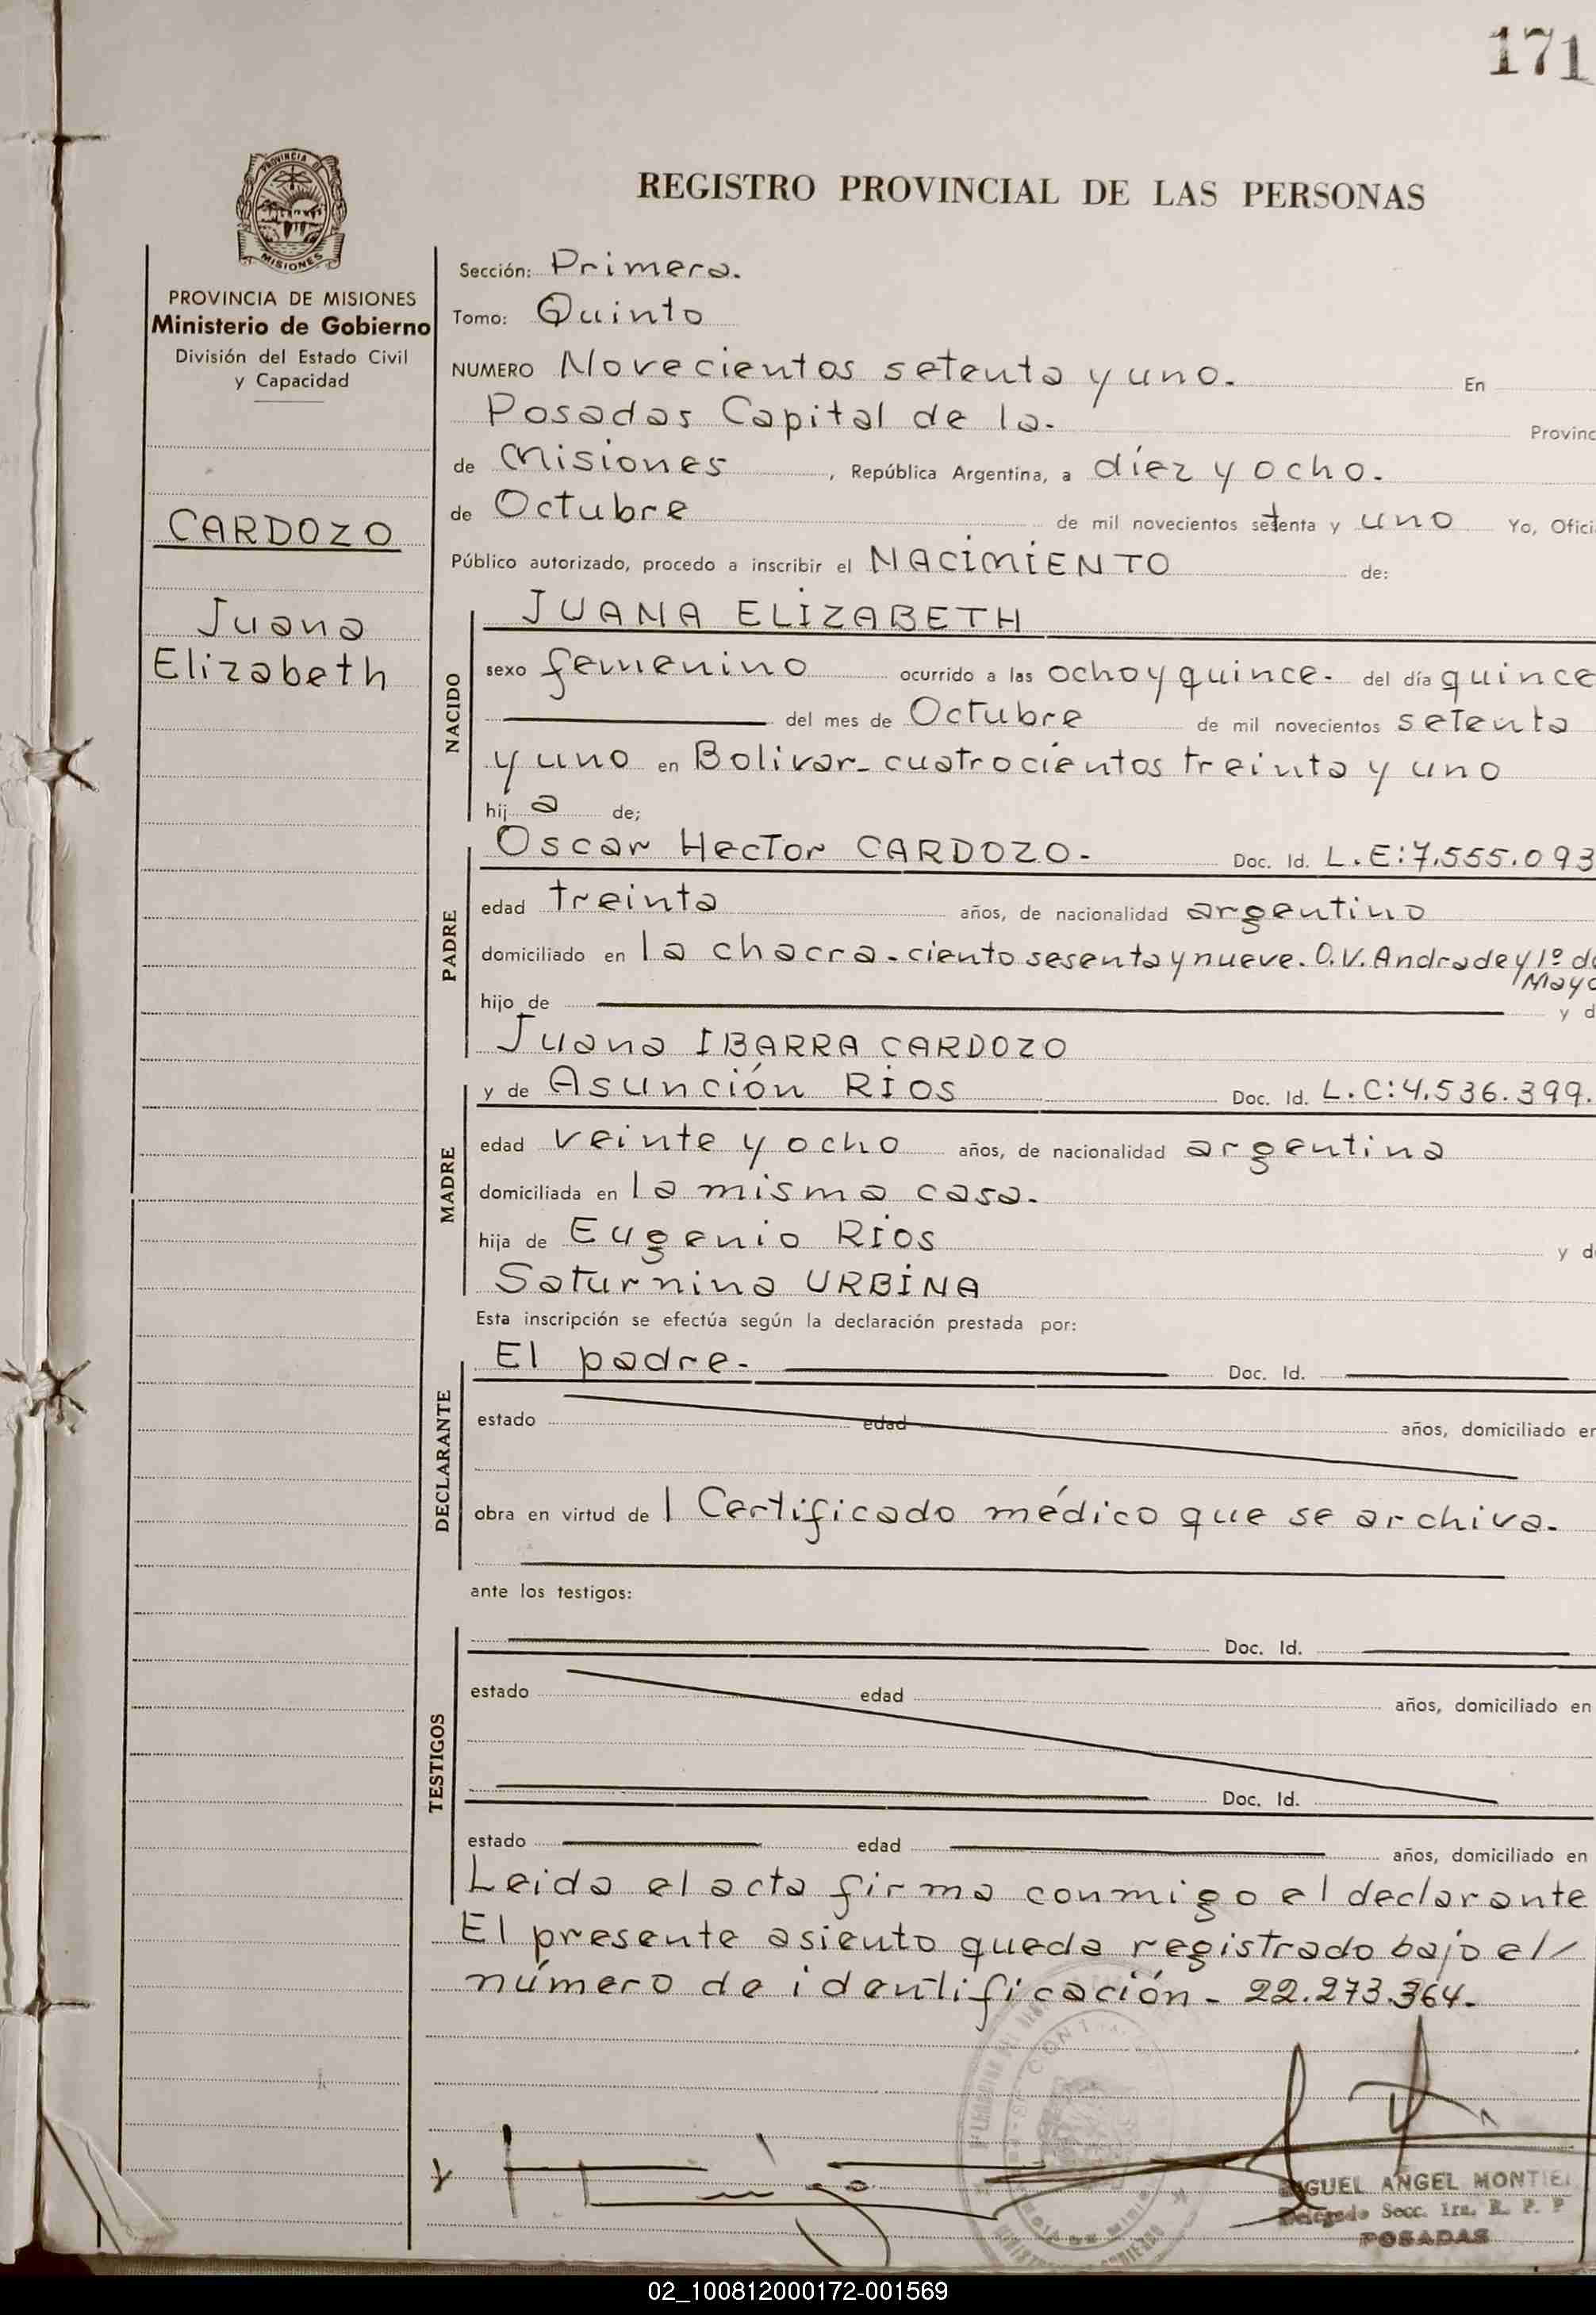 171
REGISTRO PROVINCIAL DE LAS PERSONAS
PROVINCIA DE MISIONES
PROVINCIA DE MISIONES
Ministerio de Gobierno
División del Estado Civil
y Capacidad
CARDOZO
Juana
Elizabeth
Sección: Primera.
Tomo: Quinto
NUMERO Novecientos setenta y uno. En
Posadas Capital de la. Provinc
de Misiones, República Argentina, a diez y ocho.
de Octubre de mil novecientos setenta y uno Yo, Ofici
Público autorizado, procedo a inscribir el NACIMIENTO de:
NACIDO
JUANA ELIZABETH
sexo femenino ocurrido a las ocho y quince. del día quince
del mes de Octubre de mil novecientos setenta
y uno en Bolivar_ cuatrocientos treinta y uno
hij a de;
PADRE
Oscar Hector CARDOZO. Doc. Id. L.E:7.555.093
edad treinta años, de nacionalidad argentino
domiciliado en la chacra - ciento sesenta y nueve. O.V. Andrade y 1º de
Mayo
hijo de y d
Juana IBARRA CARDOZO
MADRE
y de Asunción RIOS Doc. Id. L.C:4.536.399.
edad veinte y ocho años, de nacionalidad argentina
domiciliada en la misma casa.
hija de Eugenio RIOS y d
Saturnina URBINA
Esta inscripción se efectúa según la declaración prestada por:
DECLARANTE
El padre. Doc. Id.
estado edad años, domiciliado en
obra en virtud de l Certificado médico que se archiva.
ante los testigos:
TESTIGOS
Doc. Id.
estado edad años, domiciliado en
Doc. Id.
estado edad años, domiciliado en
Leida el acta firma conmigo el declarante
El presente asiento queda registrado bajo el/
número de identificación - 22.273.364.
MIGUEL ANGEL MONTIEL
Delegado Secc. 1ra. R. P. P
POSADAS
02_100812000172-001569